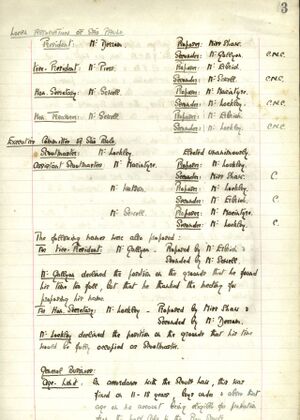 3
Local Association of São Paulo
President: Mr Deeson Proposer: Miss Shaw.
Seconder: Mr Gulliver. C.N.C.
Vice-President: Mr Proposer: Mr
Seconder: Mr Sewell. C.N.C.
Hon Secretary: Mr Sewell. Proposer: Mr Macintyre.
Seconder: Mr Lockley. C.N.C.
Hon Treasurer: Mr Sewell. Proposer: Mr
Seconder: Mr Lockley. C.N.C.
Executive Committee of São Paulo
Scoutmaster: Mr Lockley Elected unanimously.
Assistant Scoutmasters: Mr Macintyre. Proposer: Mr Lockley.
Seconder: Miss Shaw. C.
Mr Proposer: Mr Lockley.
Seconder: Mr Sewell. C.
Mr Sewell. Proposer: Mr Macintyre.
Seconder: Mr Lockley. C.
The following names were also proposed:
For Vice-President: Mr Proposed by Mr
Seconded by Mr Sewell
Mr declined the position on the grounds that he found
his time too full, but that he thanked the meeting for
proposing his name.
For Hon. Secretary: Mr Lockley - Proposed by Miss Shaw &
Seconded by Mr Deeson.
Mr Lockley declined the position on the grounds that his time
would be fully occupied as Scoutmaster.
General Business:
Age-limit. In accordance with the Scouts Laws, this was
fixed on 11 - 18 years boys under & above that
age on no account being eligible for